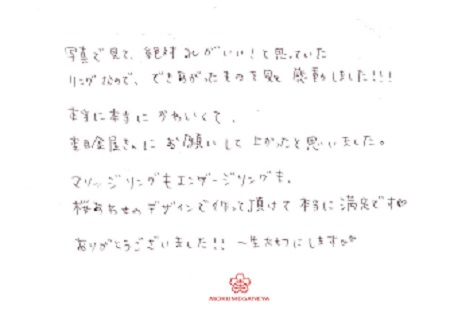 写真で見て、絶対これがいい！と思っていた
リングなので、できあがったものを見て感動しました!!!
本当に本当にかわいくて、
杢目金屋さんにお願いして上かったと思いました。
マリッジリングもエンゲージリングも、
桜あわせのデザインで作って頂けて本当に満足です♡
ありがとうございました!! 一生大切にします♡♡
MOKUMEGANEYA